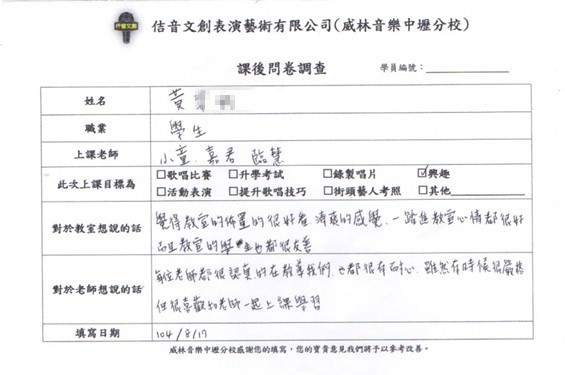 佶音文創
佶音文創表演藝術有限公司(威林音樂中壢分校)
課後問卷調查
學員編號：
姓名 黃
職業 學生
上課老師 小童、嘉君 臨慧
此次上課目標為 □歌唱比賽 □升學考試 □錄製唱片 ☑興趣
□活動表演 □提升歌唱技巧 □街頭藝人考照 □其他
對於教室想說的話 覺得教室的佈置的很好看 清爽的感覺、一踏進教室心情都很好
而且教室的學生也都很友善
對於老師想說的話 每位老師都很認真的在教導我們、也都很有耐心、雖然有時候很嚴格
但很喜歡和老師一起上課學習
填寫日期 104/8/17
威林音樂中壢分校感謝您的填寫，您的寶貴意見我們將予以參考改善。